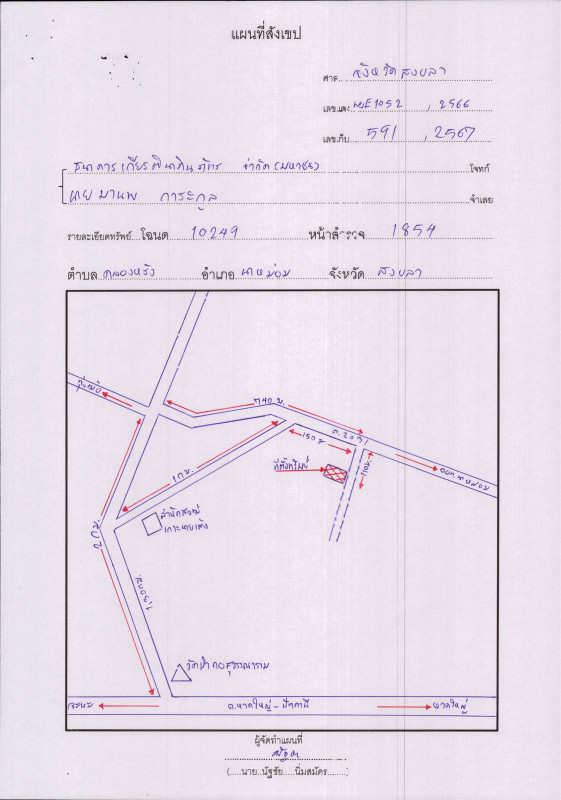 แผนที่สังเขป
ศาล จังหวัดสงขลา
เลขแดง ผบE1052 , 2566
เลขเก็บ 591 , 2567
ธนาคารเกียรตินาคินภัทร จำกัด (มหาชน) โจทก์
นายมานพ การะกูล จำเลย
รายละเอียดทรัพย์ โฉนด 10249 หน้าสำรวจ 1854
ตำบล คลองหรัง อำเภอ นาหม่อม จังหวัด สงขลา
740 ม.
ถ.2031
150 ม
อบต.นาหม่อม
ที่ตั้งทรัพย์
1 กม.
สำนักสงฆ์
2 กม.
วัดป่ากอสุวรรณาราม
จะนะ
ถ.หาดใหญ่ - ปัตตานี
หาดใหญ่
ผู้จัดทำแผนที่
(.....นาย..นัฐชัย.....นิ่มสมัคร.........)